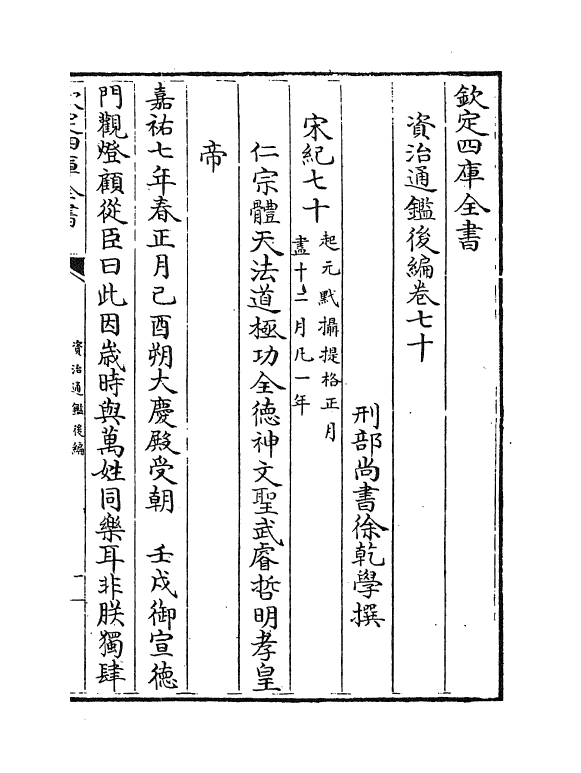 欽定四庫全書
資治通鑑後編卷七十
刑部尚書徐乾學撰
宋紀七十起元黓攝提格正月
盡十二月凡一年
仁宗體天法道極功全德神文聖武睿哲明孝皇
帝
嘉祐七年春正月己酉朔大慶殿受朝　壬戌御宣德
門觀燈顧從臣曰此因歲時與萬姓同樂耳非朕獨肆
欽定四庫全書
資治通鑑後編
一